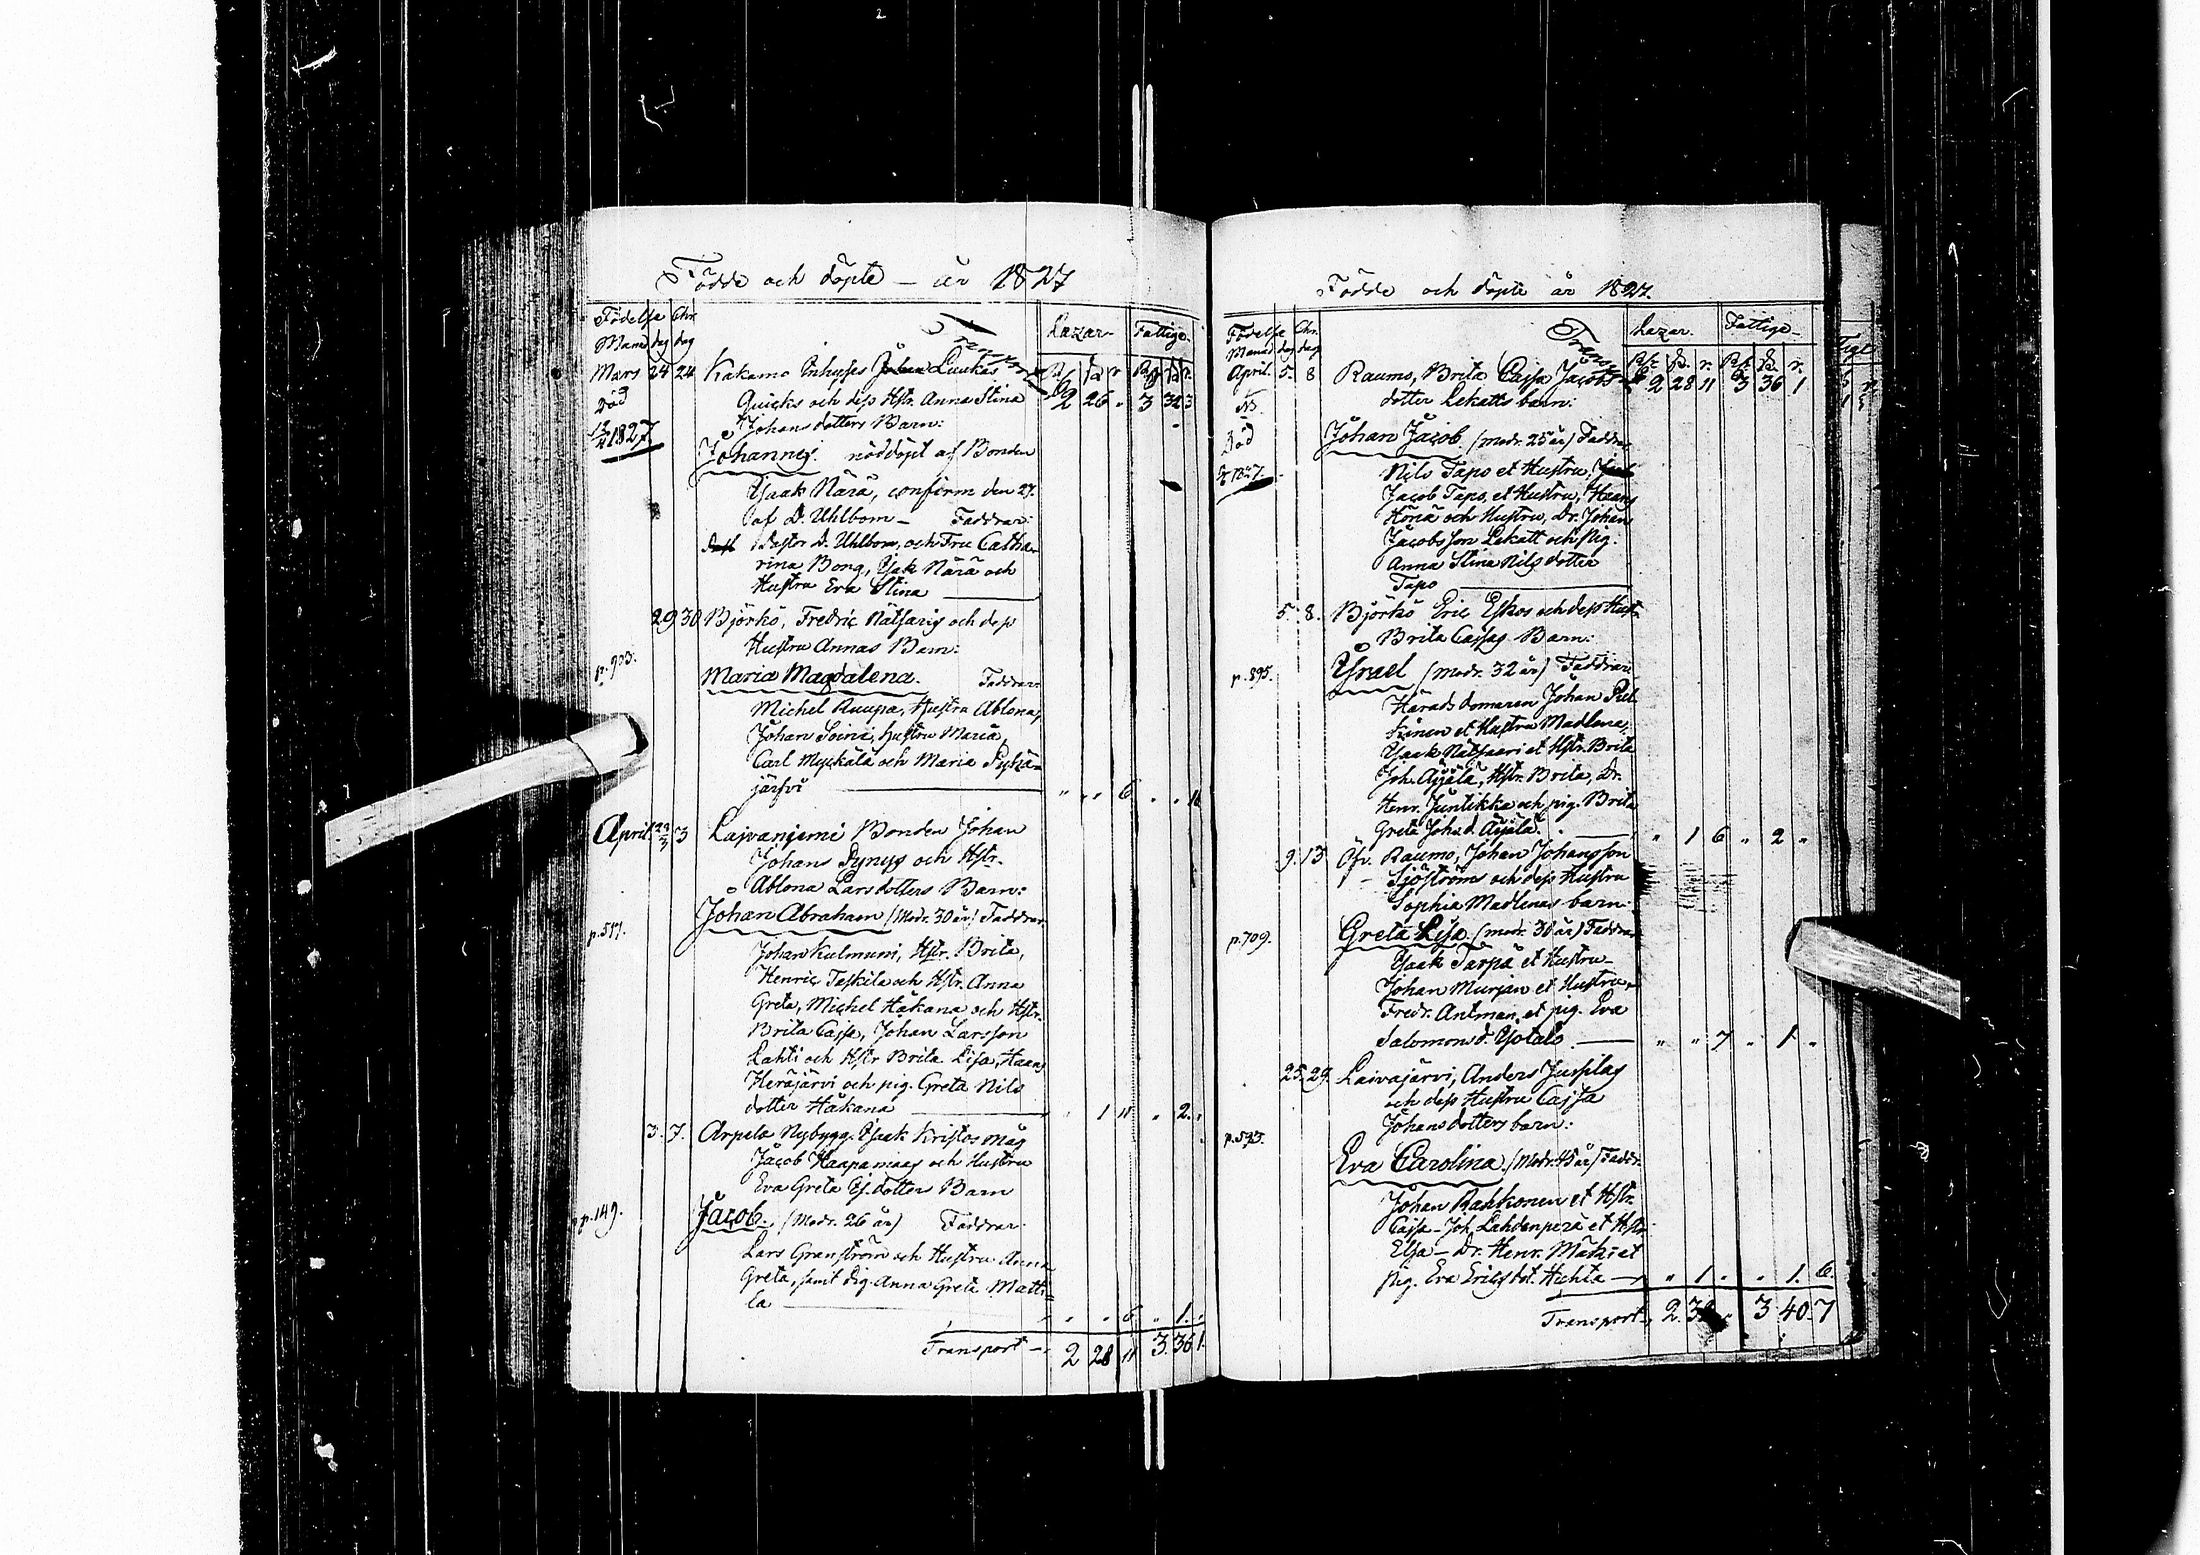 Födde och döpte – år 1827
Födelse Chr.
Månd dag dag
Lazar. Fattige.
Mars 24 24 Kakamo Inhyses Luukas
2 26 " 3 32 3
Död Quicks och dess Hstr. Anna Stina
1827 Johansdotters Barn:
Johannes. nöddöpt af Bonden
Isaak Närä, confirm den 27.
af D. Uhlbom – Faddrar:
Pastor D. Uhlbom, och Fru Catha-
rina Bong, Isak Närä och
Hustru Eva Stina
29 30 Björkö, Fredric Nätsaris och dess
Hustru Annas Barn:
p. 903.
Maria Magdalena. Faddrar:
Michel Ruupa, Hustru Ablona,
Johan Soini, Hustru Maria,
Carl Myckälä och Maria Pyhä-
järfvi " " 6 " "
April 3 Laivaniemi Bonden Johan
Johans Pynys och Hstr.
Ablona Larsdotters Barn:
Johan Abraham (Modr. 30 år) Faddrar
p. 517.
Johan Kulmuni, Hstr. Brita,
Henric Taskila och Hstr. Anna
Greta, Michel Håkana och Hstr.
Brita Cajsa, Johan Larsson
Lahti och Hstr Brita Lisa, Hans
Heräjärvi och pig. Greta Nils
dotter Håkana " 1 11 " 2 "
3. 7. Arpela Nybygg. Isaak Kristos måg
Jacob Haapaniemis och Hustru
Eva Greta Is. dotters Barn
p. 149.
Jacob. (Modr. 26 år) Faddrar:
Lars Granström och Hustru Anna
Greta, samt Pig. Anna Greta Matti-
la " " 6 " 1. "
Transport – 2 28 11 3. 36 1.
Födde och döpte år 1827.
Födelse Chr.
Månad dag dag
Lazar. Fattige
April. 5. 8 Raumo, Brita Cajsa Jacobs 2 28 11 3 36 1
dotter Lekatts barn:
Död Johan Jacob. (modr. 25 år) Faddrar
1827.
Nils Tapo et Hustru,
Jacob Tapo, et Hustru, Hans
Höriä och Hustru, Dr. Johan
Jacobsson Lekatt och Pig.
Anna Stina Nilsdotter
Tapo
5. 8. Björkö Eric Eskos och dess Hustr.
Brita Cajsas Barn:
p. 895.
Israel (modr. 32 år) Faddrar
Häradsdomaren Johan Pul-
kinen et Hustru Madlena,
Isaak Nätsaari et Hstr. Brita
Joh. Äijälä, Hstr. Brita, Dr.
Henr. Juntikka och pig. Brita
Greta Joh.d. Äijälä. " 1 6 " 2 "
9. 13 Öfv. Raumo, Johan Johansson
Sjöströms och dess Hustru
Sophia Madlenas barn:
p. 709.
Greta Lisa. (modr. 30 år) Faddrar
Isaak Tarpa et Hustru
Johan Murjan et Hustru,
Fredr. Antman, et pig. Eva
Salomonsd. Ylotalo. " " 7 " 1 "
25. 29. Laivajärvi, Anders Juuslas
och dess Hustru Cajsa
Johansdotters barn:
p. 593.
Eva Carolina. (Modr. 45 år) Faddr.
Johan Rahkonen et Hstr.
Cajsa – Joh. Lahdenperä et Hstr
Elsa – Dr. Henr. Mäki et
Pig. Eva Ericsdot. Huhta – " 1 " " 1. 6.
Transport 2. 3. 40. 7